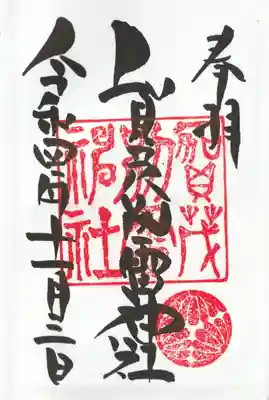 奉拝
上賀茂別雷神社
令和四年十一月三日
賀茂
神社